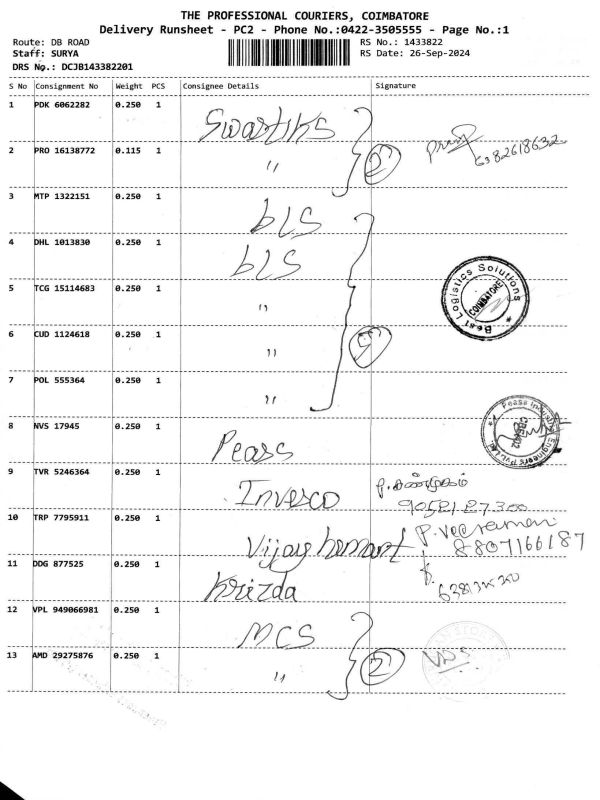 THE PROFESSIONAL COURIERS, COIMBATORE
Delivery Runsheet - PC2 - Phone No.:0422-3505555 - Page No.:1
Route: DB ROAD RS No.: 1433822
Staff: SURYA RS Date: 26-Sep-2024
DRS No.: DCJB143382201
S No Consignment No Weight PCS Consignee Details Signature
1 PDK 6062282 0.250 1 Swastiks
2 PRO 16138772 0.115 1 " 2 6382618632
3 MTP 1322151 0.250 1 bLS
4 DHL 1013830 0.250 1 bLS
5 TCG 15114683 0.250 1 " Best Logistics Solutions * COIMBATORE
6 CUD 1124618 0.250 1 " 5
7 POL 555364 0.250 1 "
8 NVS 17945 0.250 1 Pease Pease Engineers Pvt. Ltd.
9 TVR 5246364 0.250 1 Invesco
10 TRP 7795911 0.250 1 Vijay hemant 8807166187
11 DDG 877525 0.250 1 Krizda
12 VPL 949066981 0.250 1 MCS
13 AMD 29275876 0.250 1 " 2